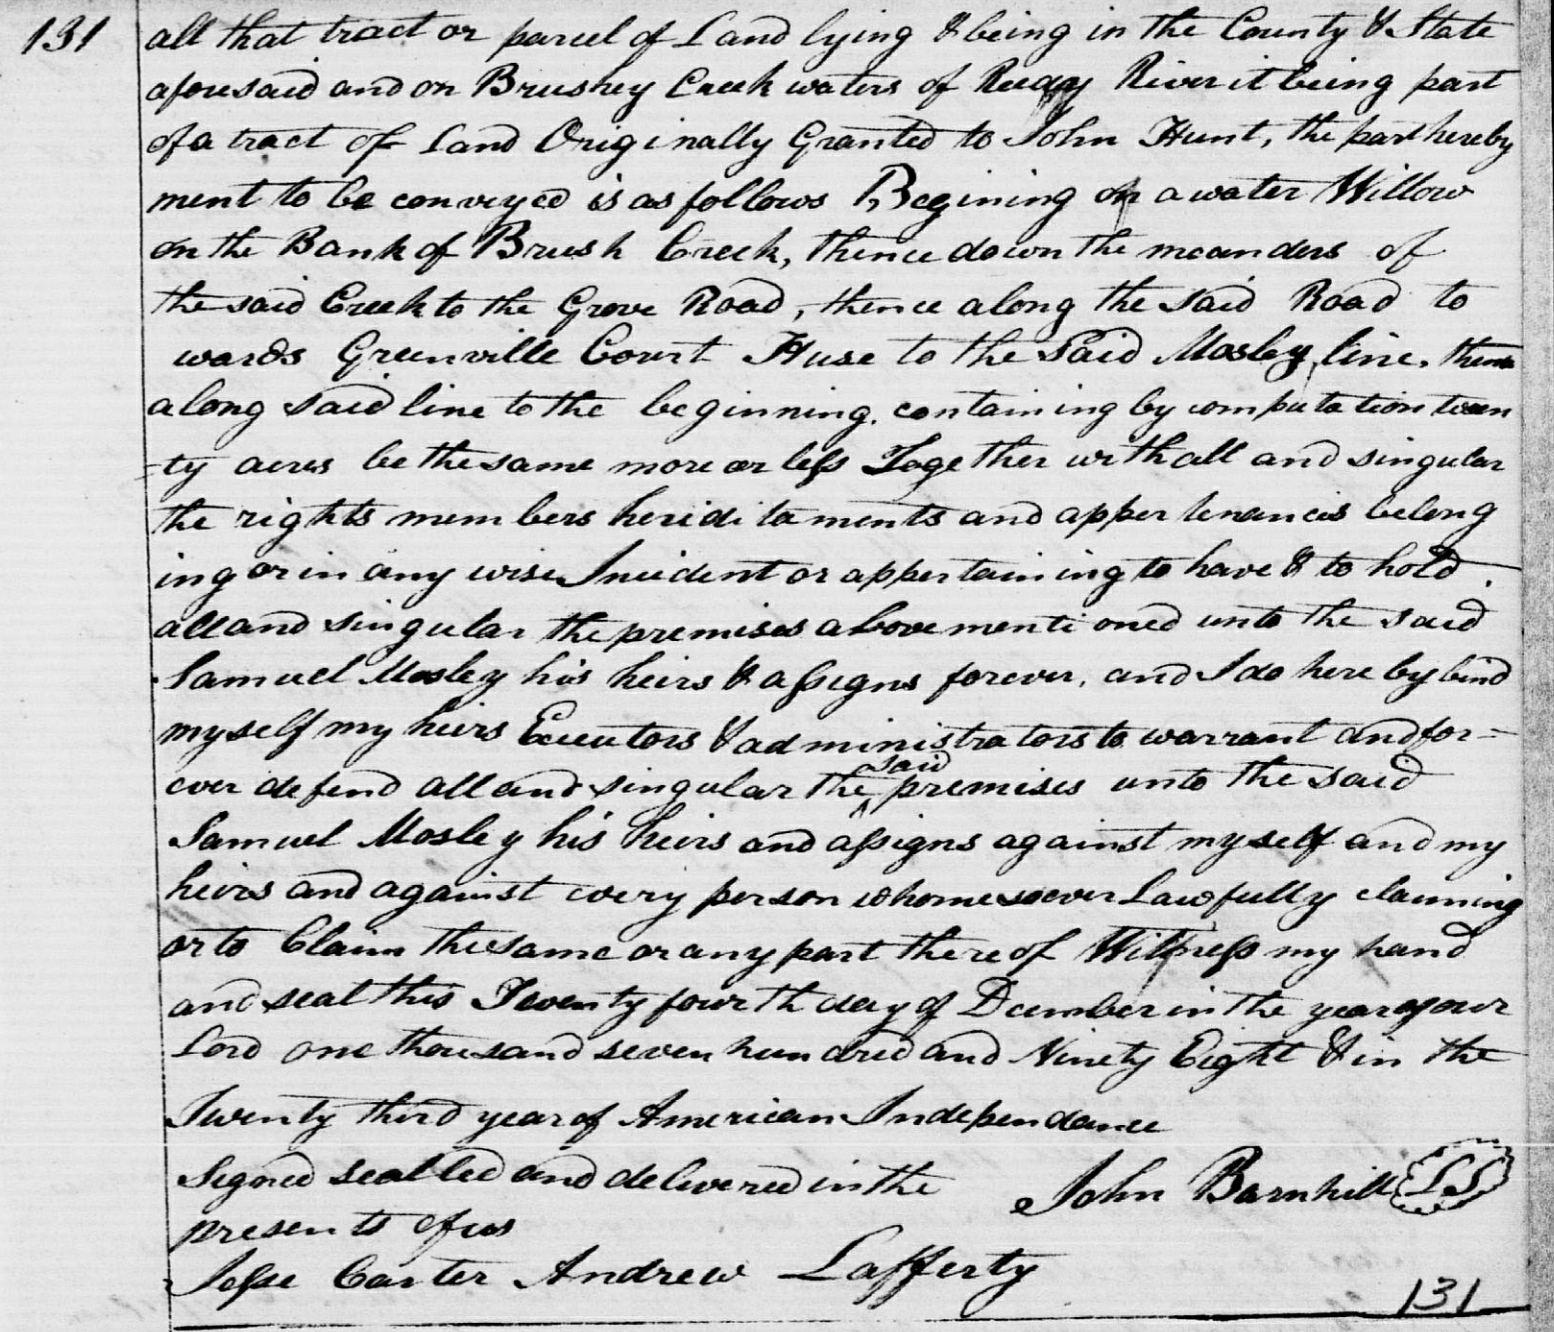 131
all that tract or parcel of Land lying & being in the County & State
aforesaid and on Brushey Creek waters of Reedy River it being part
of a tract of Land Originally Granted to John Hunt, the part hereby
ment to be conveyed is as follows Begining on a water Willow
on the Bank of Brush Creek, thence down the meanders of
the said Creek to the Grove Road, thence along the said Road to
wards Greenville Court Huse to the said Mosley line, thence
along said line to the beginning. containing by computation twen
-ty acres be the same more or less Together with all and singular
the rights members heriditaments and appertenances belong
ing or in any wise Incident or appertaining to have & to hold
all and singular the premises above mentioned unto the said
Samuel Mosley his heirs & assigns forever, and I do here by bind
myself my heirs Executors & administrators to warrant and for=
ever defend all and singular the said premises unto the said
Samuel Mosley his heirs and assigns against myself and my
heirs and against every person whomesoever Lawfully claiming
or to Claim the same or any part there of Witness my hand
and seal this Twenty fourth day of December in the year of our
Lord one thousand seven hundred and Ninety Eight & in the
Twenty third year of American Independance
Signed sealled and delivered in the John Barnhill LS
presents of us
Jesse Carter Andrew Lafferty
131